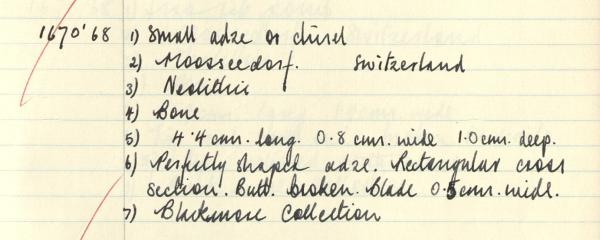 1670'68 1) Small adze or chisel
2) Moosseedorf. Switzerland
3) Neolithic
4) Bone
5) 4.4 cms. long. 0.8 cms. wide 1.0 cms. deep.
6) Perfectly shaped adze. Rectangular cross
section. Butt. broken. Blade 0.5 cms. wide.
7) Blackmore Collection